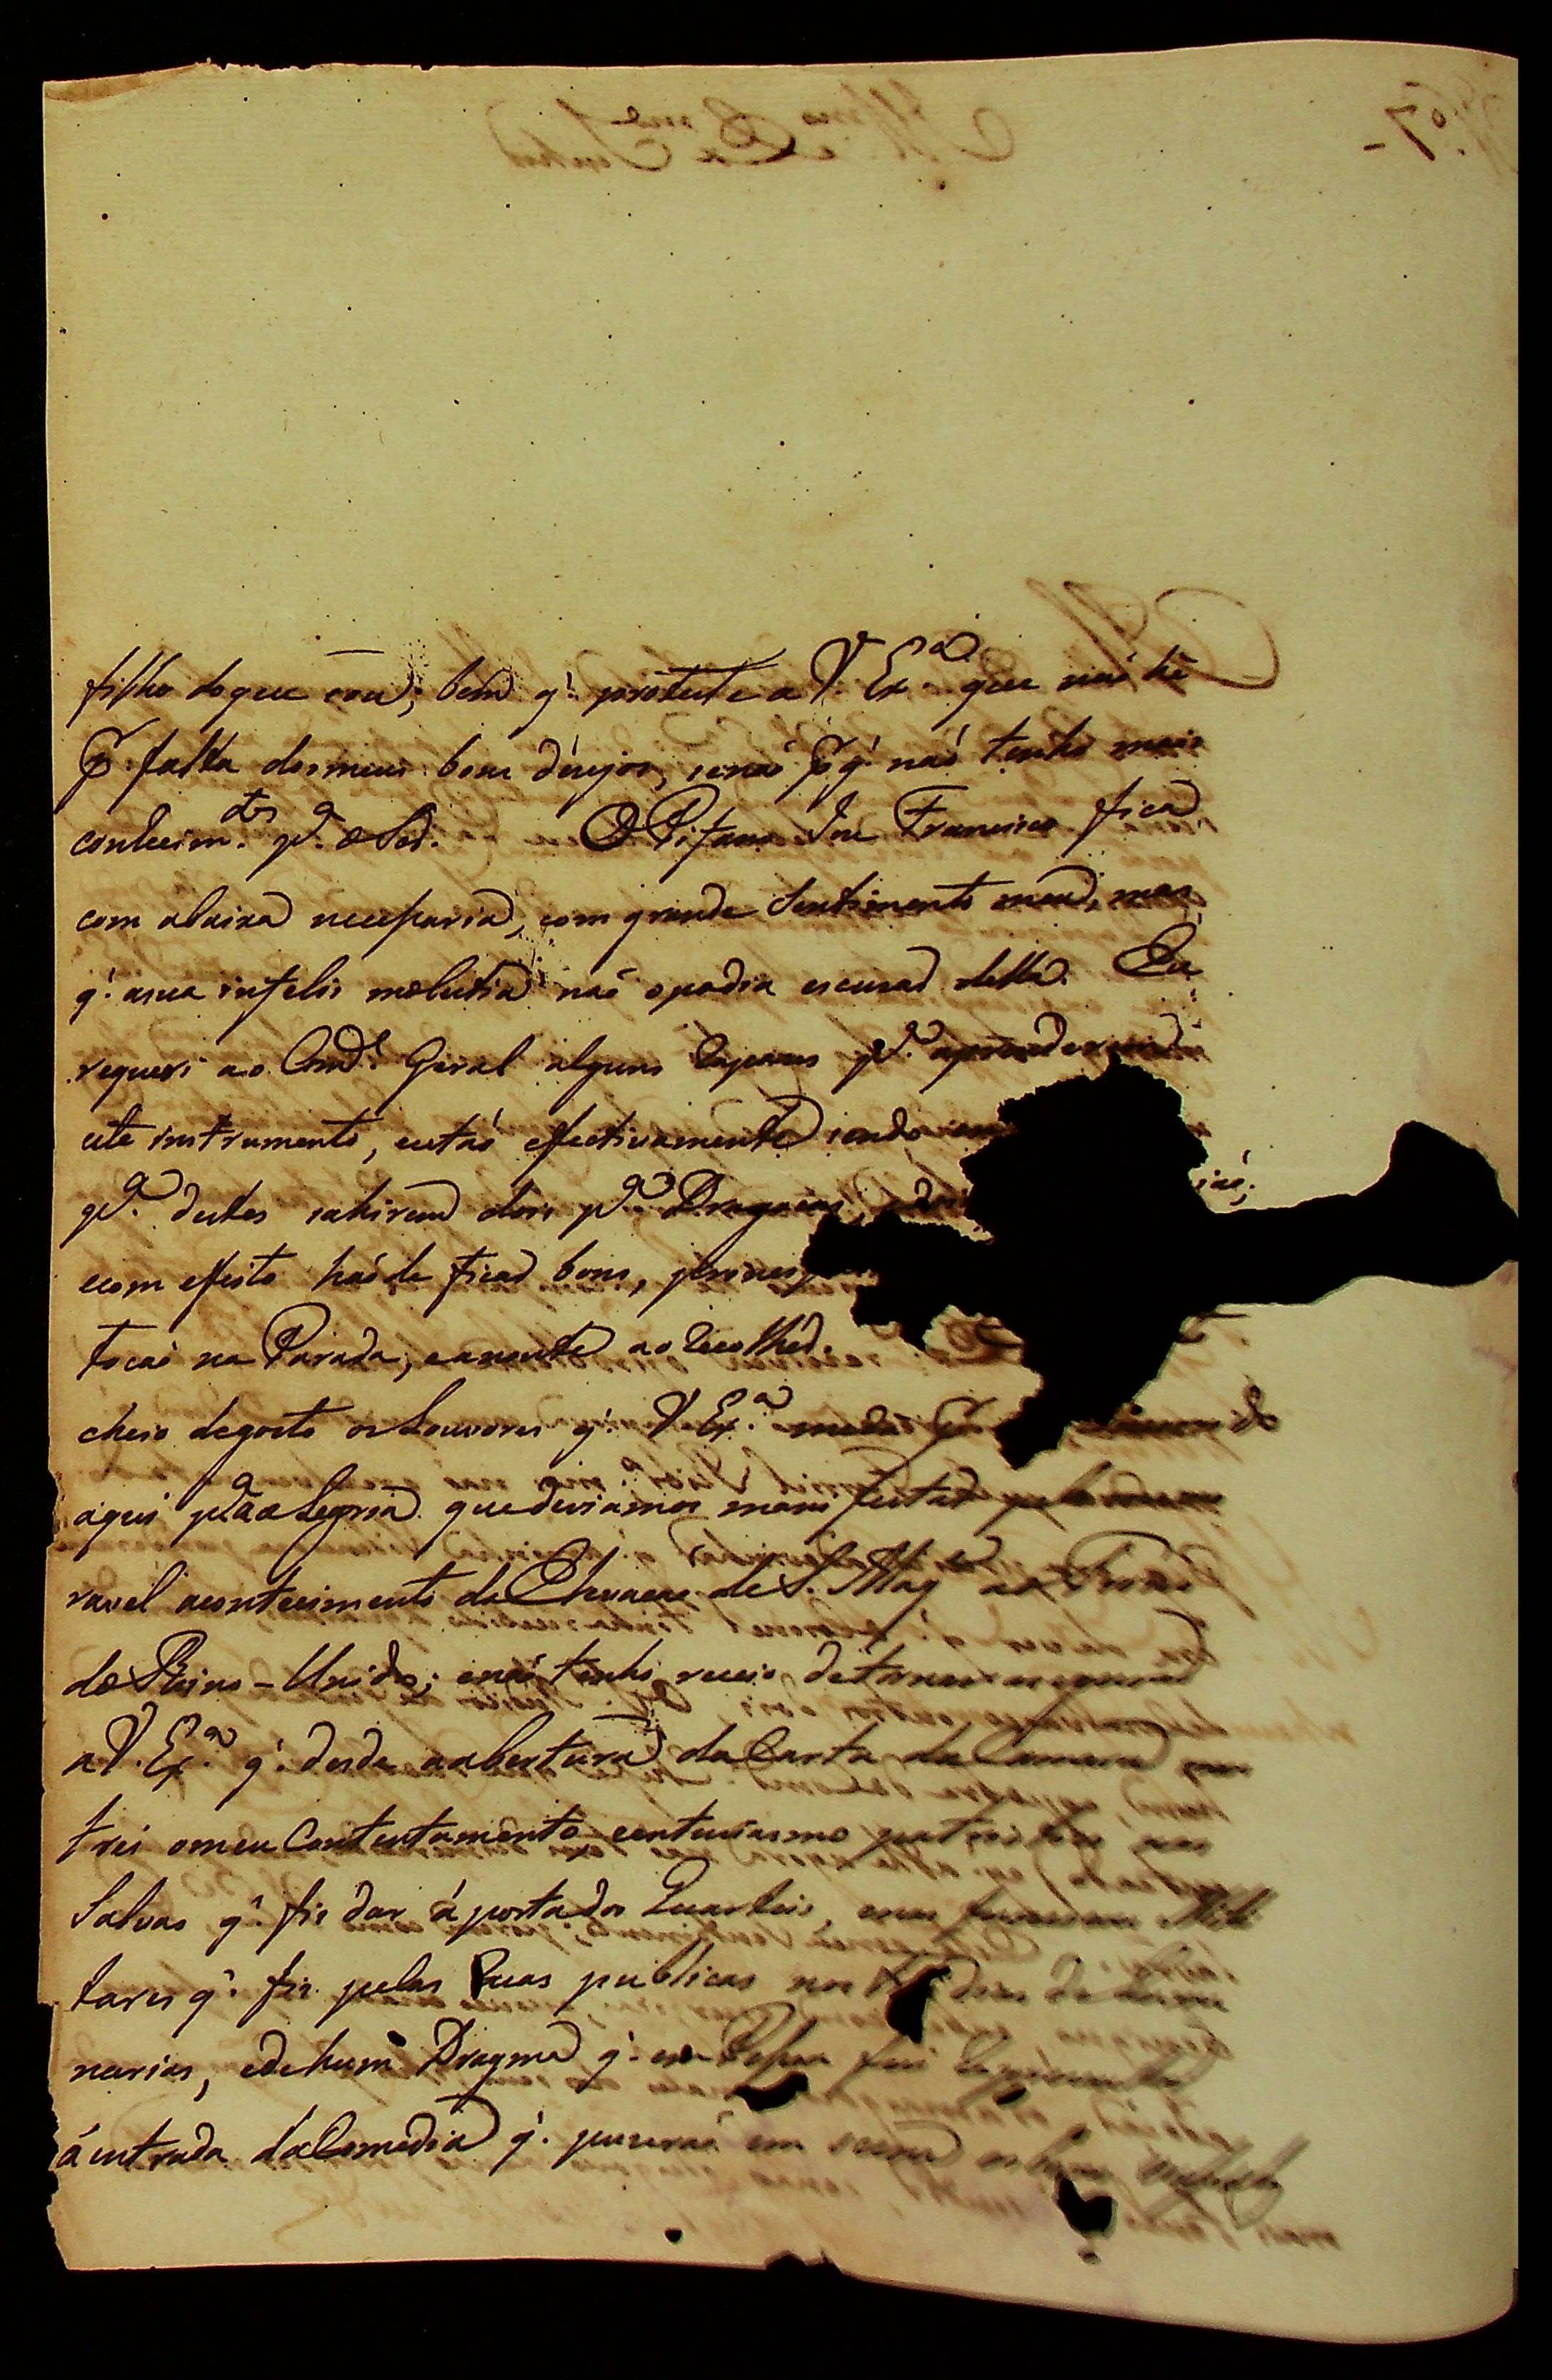 filho do que sou; bem q.' proteste a V. Ex.ª que naõ hé
P. falta dos meus bons dezejos, senaõ P q.' naõ tenho mais
conhecim.tos p.ª o Sêr. O Pifano Joze Francisco fica
com abaixa necessaria, com grande Sentimento meu, mas
q.' asua infelis molestia naõ opodia escusar della. Eu
requeri ao Com.de Geral alguns Rapazes p.ª aprenderem
este instrumento, estaõ efectivamente sendo
p.ª destes sahirem dois p.ª Dragoens,
ecom efeito haõde ficar bons,
tocaõ na Parada, eanoute ao Recolher.
cheio degosto os Louvores q.' V. Ex.ª me da P
aqui p.ª a alegria que deviamos manifestar pelo
ravel acontecimento da Elevaçaõ de S. Mag.e ao Trono
do Reino-Unido; enaõ tenho receio detornar asegurar
a V. Ex.ª q.' desde aabertura da Carta da Camara
trei omeu Contentamento eentusiasmo patriotico nas
Salvas q.' fis dar áporta dos Quarteis, enas funçoens Mili
tares q.' fis pelas Ruas publicas nos dias de Lumi
narias, ede hum Dragma q.' em Pessoa fui Representar
áentrada da Comedia q.' puseraõ em scena os